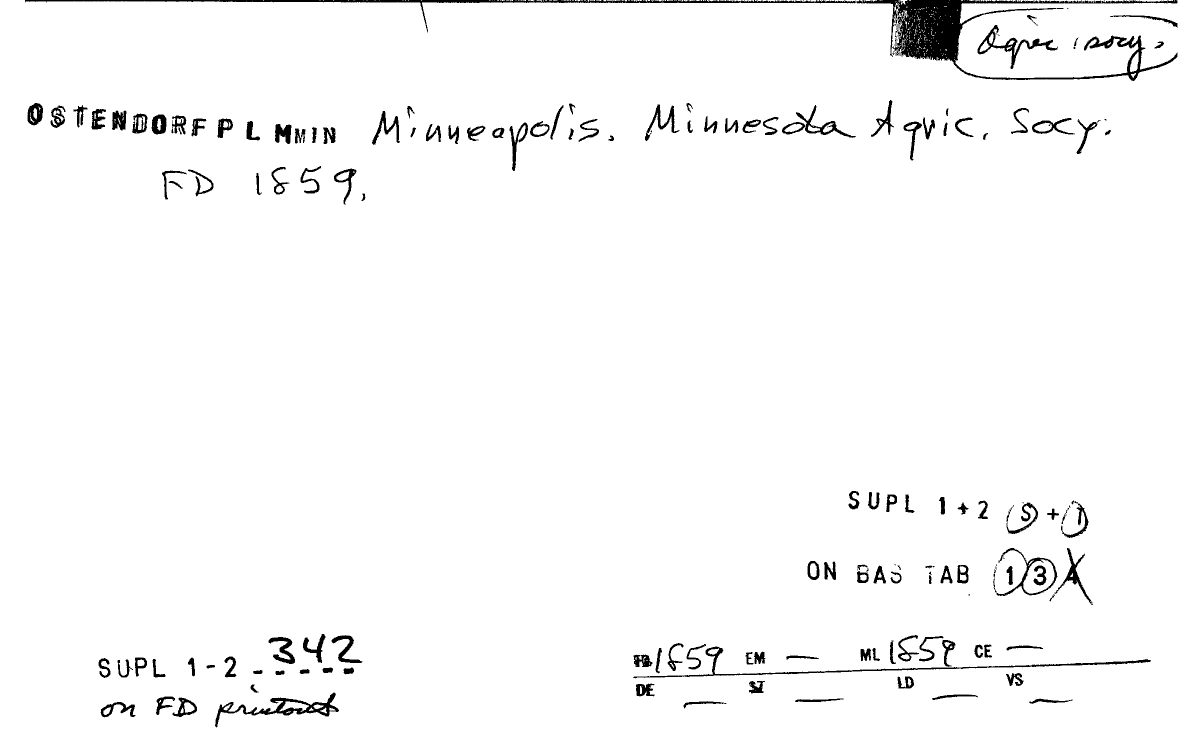 Agric. socy.
OSTENDORF P L MMIN Minneapolis. Minnesota Agric. Socy.
FD 1859.
SUPL 1+2 S+T
ON BAS TAB 1 3 4
SUPL 1-2 342
on FD printout
FD 1859 EM — ML 1859 CE —
DE — ST — LD — VS —